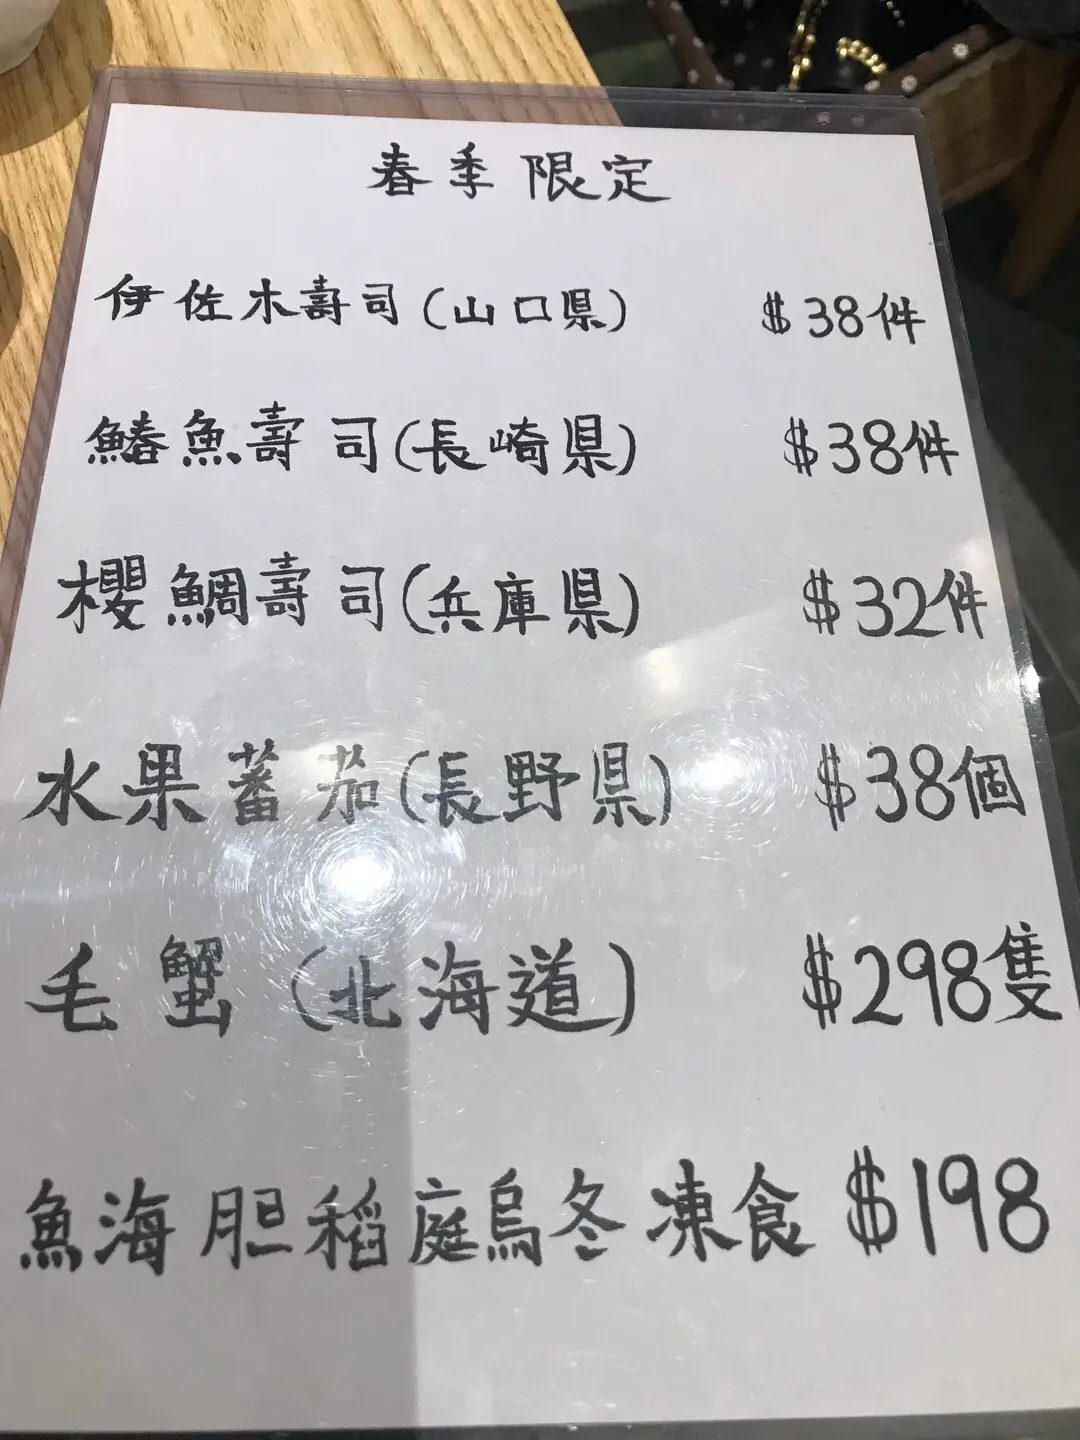 春季限定
伊佐木壽司(山口県) $38件
鰆魚壽司(長崎県) $38件
櫻鯛壽司(兵庫県) $32件
水果蕃茄(長野県) $38個
毛蟹(北海道) $298隻
魚海胆稻庭烏冬凍食 $198